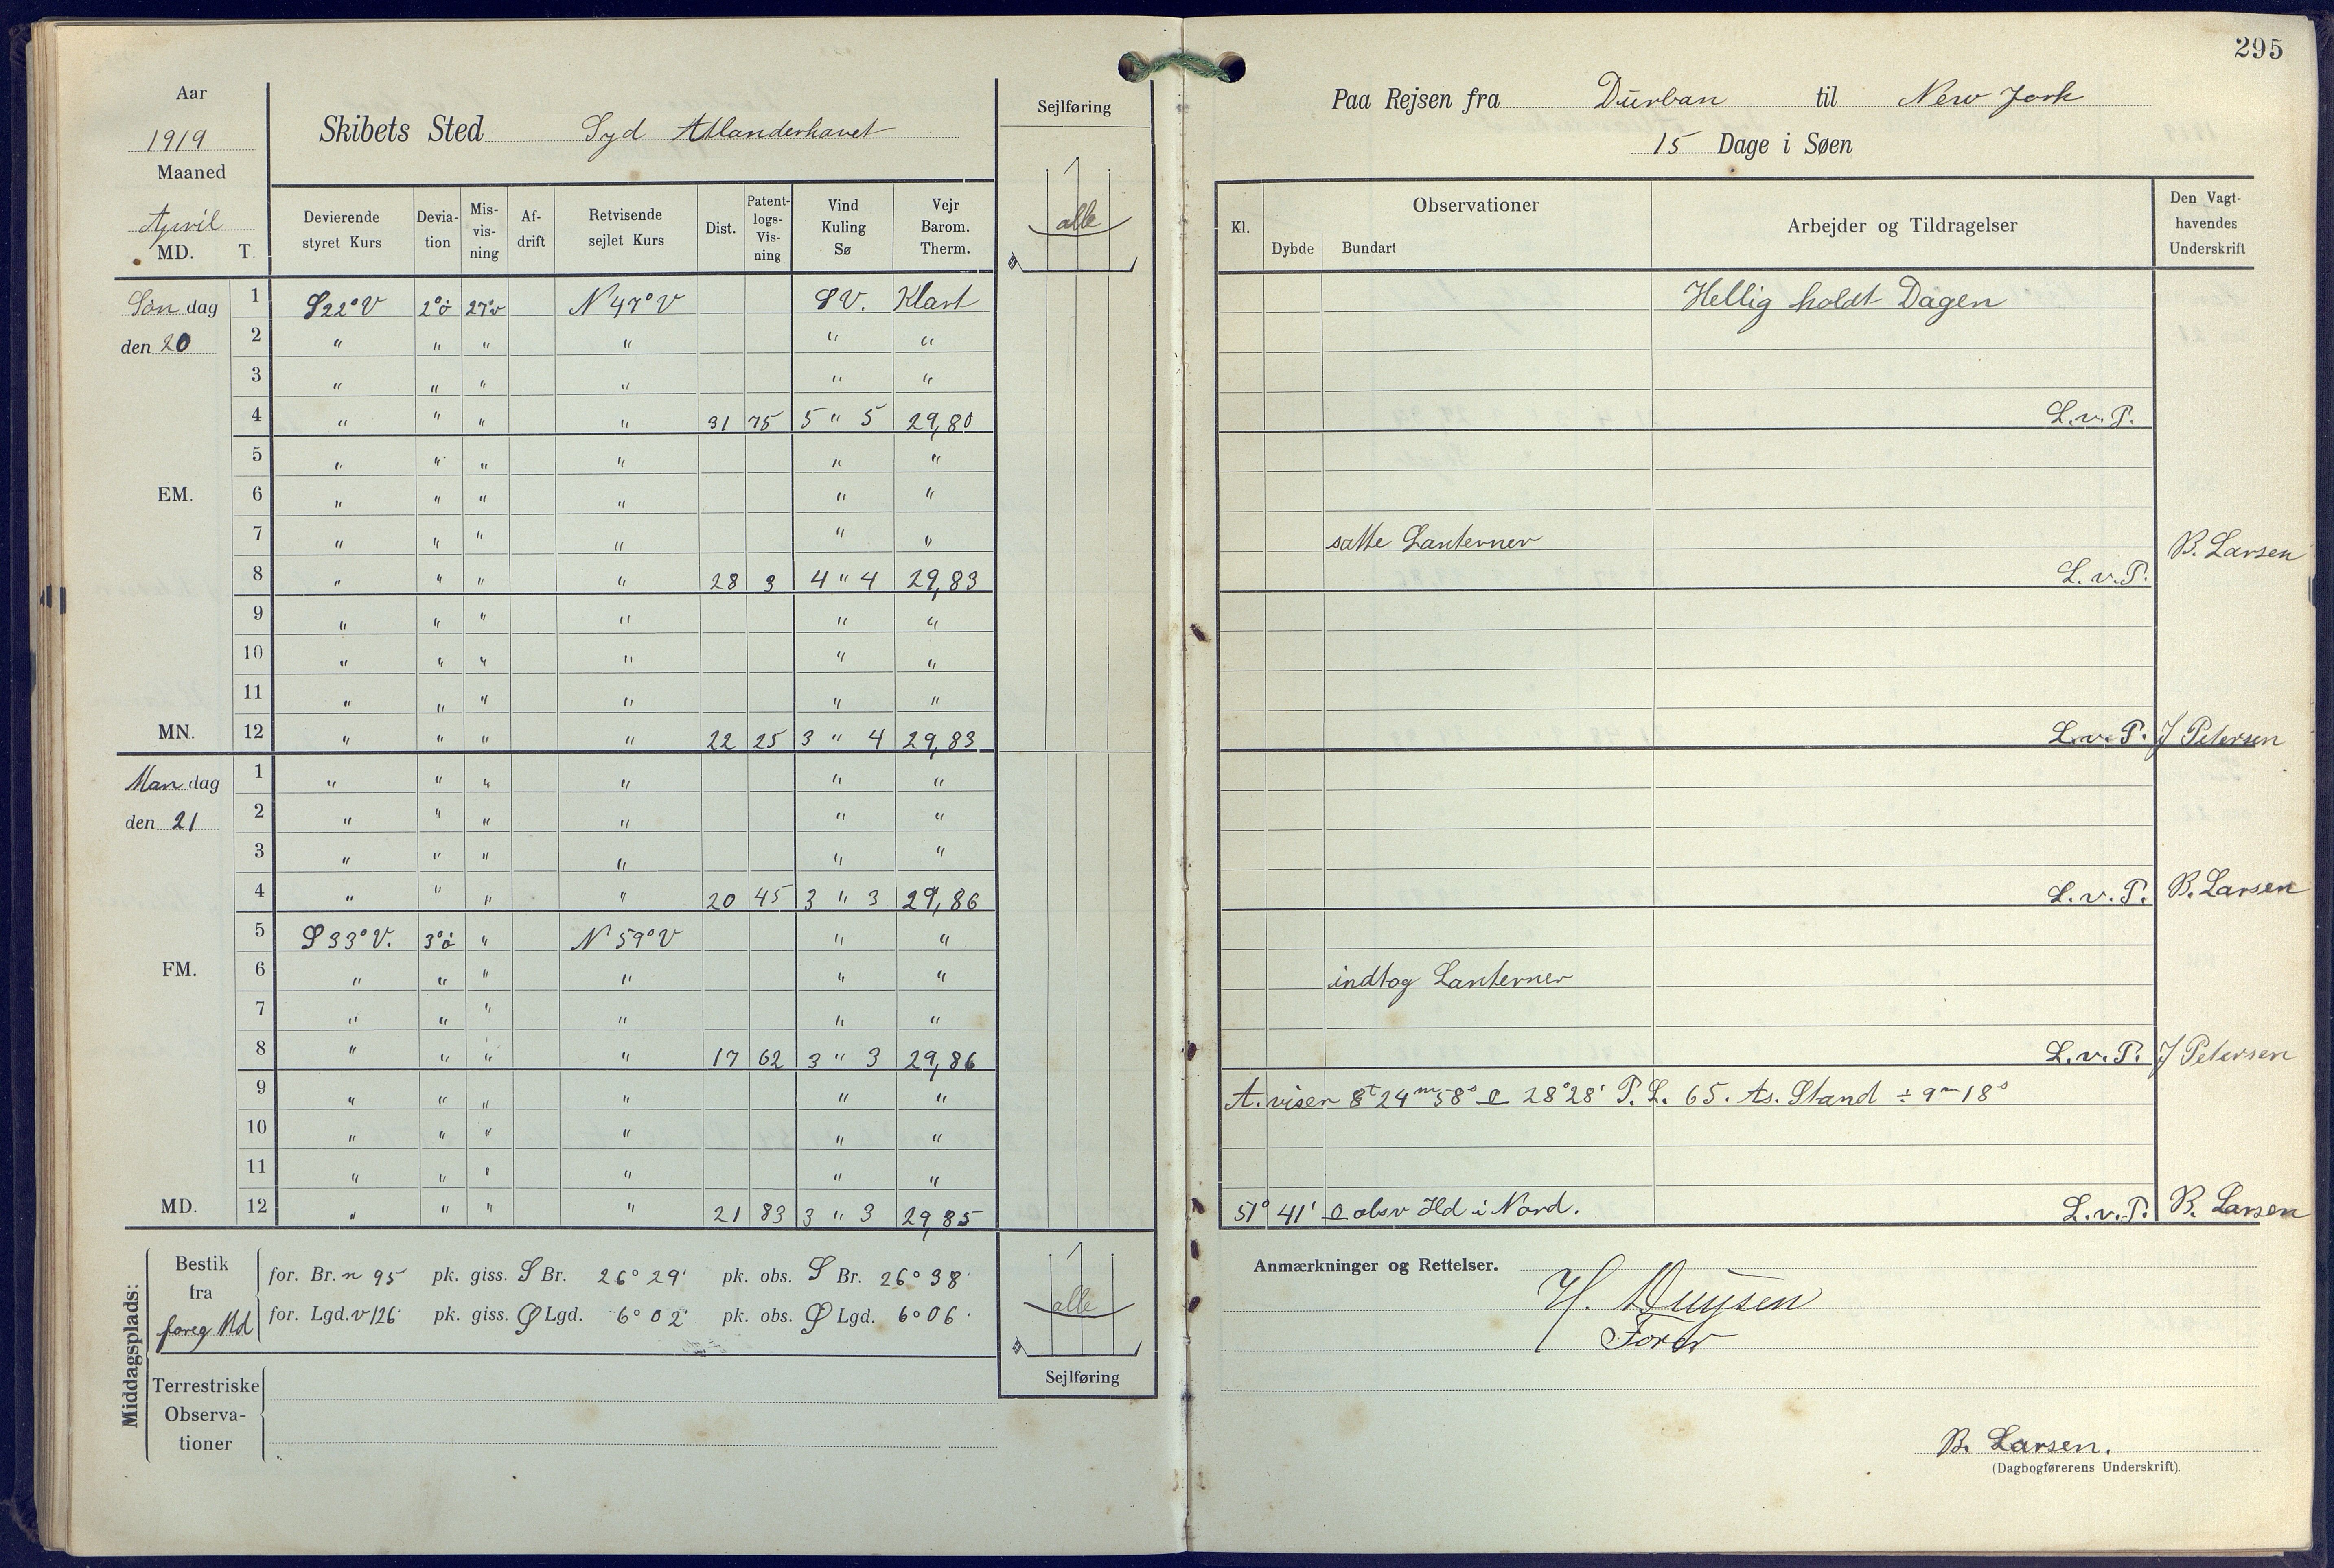 295
Aar
1919
Maaned
April
MD. T.
Skibets Sted Syd Atlanderhavet
Sejlføring
alle
Devierende styret Kurs
Devia-tion
Mis-vis-ning
Af-drift
Retvisende sejlet Kurs
Dist.
Patent-logs-Vis-ning
Vind Kuling Sø
Vejr Barom. Therm.
Søn dag 1 S22°V 2°ö 27°v N 47°V SV. Klart
den 20 2 " " " " " "
3 " " " " " "
4 " " " " 31 75 5 " 5 29,80
5 " " " " " "
EM. 6 " " " " " "
7 " " " " " "
8 " " " " 28 3 4 " 4 29,83
9 " " " " " "
10 " " " " " "
11 " " " " " "
MN. 12 " " " " 22 25 3 " 4 29,83
Man dag 1 " " " " " "
den 21 2 " " " " " "
3 " " " " " "
4 " " " " 20 45 3 " 3 29,86
5 S 33°V. 3°ö " N 59°V " "
FM. 6 " " " " " "
7 " " " " " "
8 " " " " 17 62 3 " 3 29,86
9 " " " " " "
10 " " " " " "
11 " " " " " "
MD. 12 " " " " 21 83 3 " 3 29,85
Middagsplads:
Bestik fra foreg Md
for. Br. n 95 pk. giss. S Br. 26° 29' pk. obs. S Br. 26° 38'
for. Lgd. v 126' pk. giss. Ø Lgd. 6° 02' pk. obs. Ø Lgd. 6° 06'
alle
Sejlføring
Terrestriske Observa-tioner
Paa Rejsen fra Durban til New York
15 Dage i Søen
Kl.
Observationer
Dybde Bundart
Arbejder og Tildragelser
Den Vagt-havendes Underskrift
Hellig holdt Dagen
L.v.P.
satte Lanterner B. Larsen
L.v.P.
L.v.P. J Petersen
L.v.P. B. Larsen
indtog Lanterner
L.v.P. J Petersen
A. viser 8t 24m 58s 28°28' P.L. 65. As. Stand ÷ 9m 18s
51° 41' obsv Hd i Nord. L.v.P. B. Larsen
Anmærkninger og Rettelser.
H.
Fører
B. Larsen.
(Dagbogførerens Underskrift).